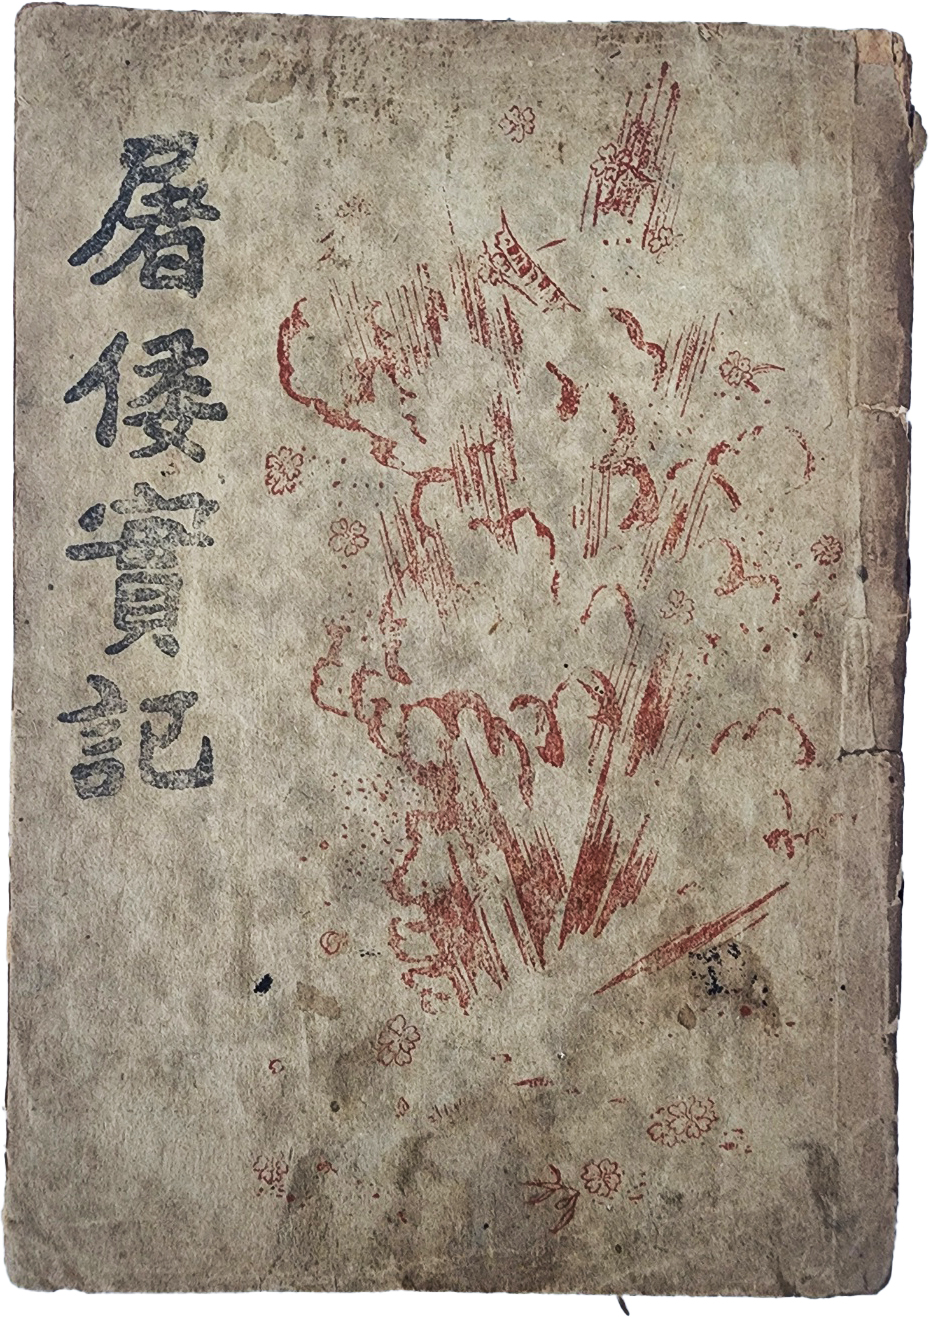 屠倭實記